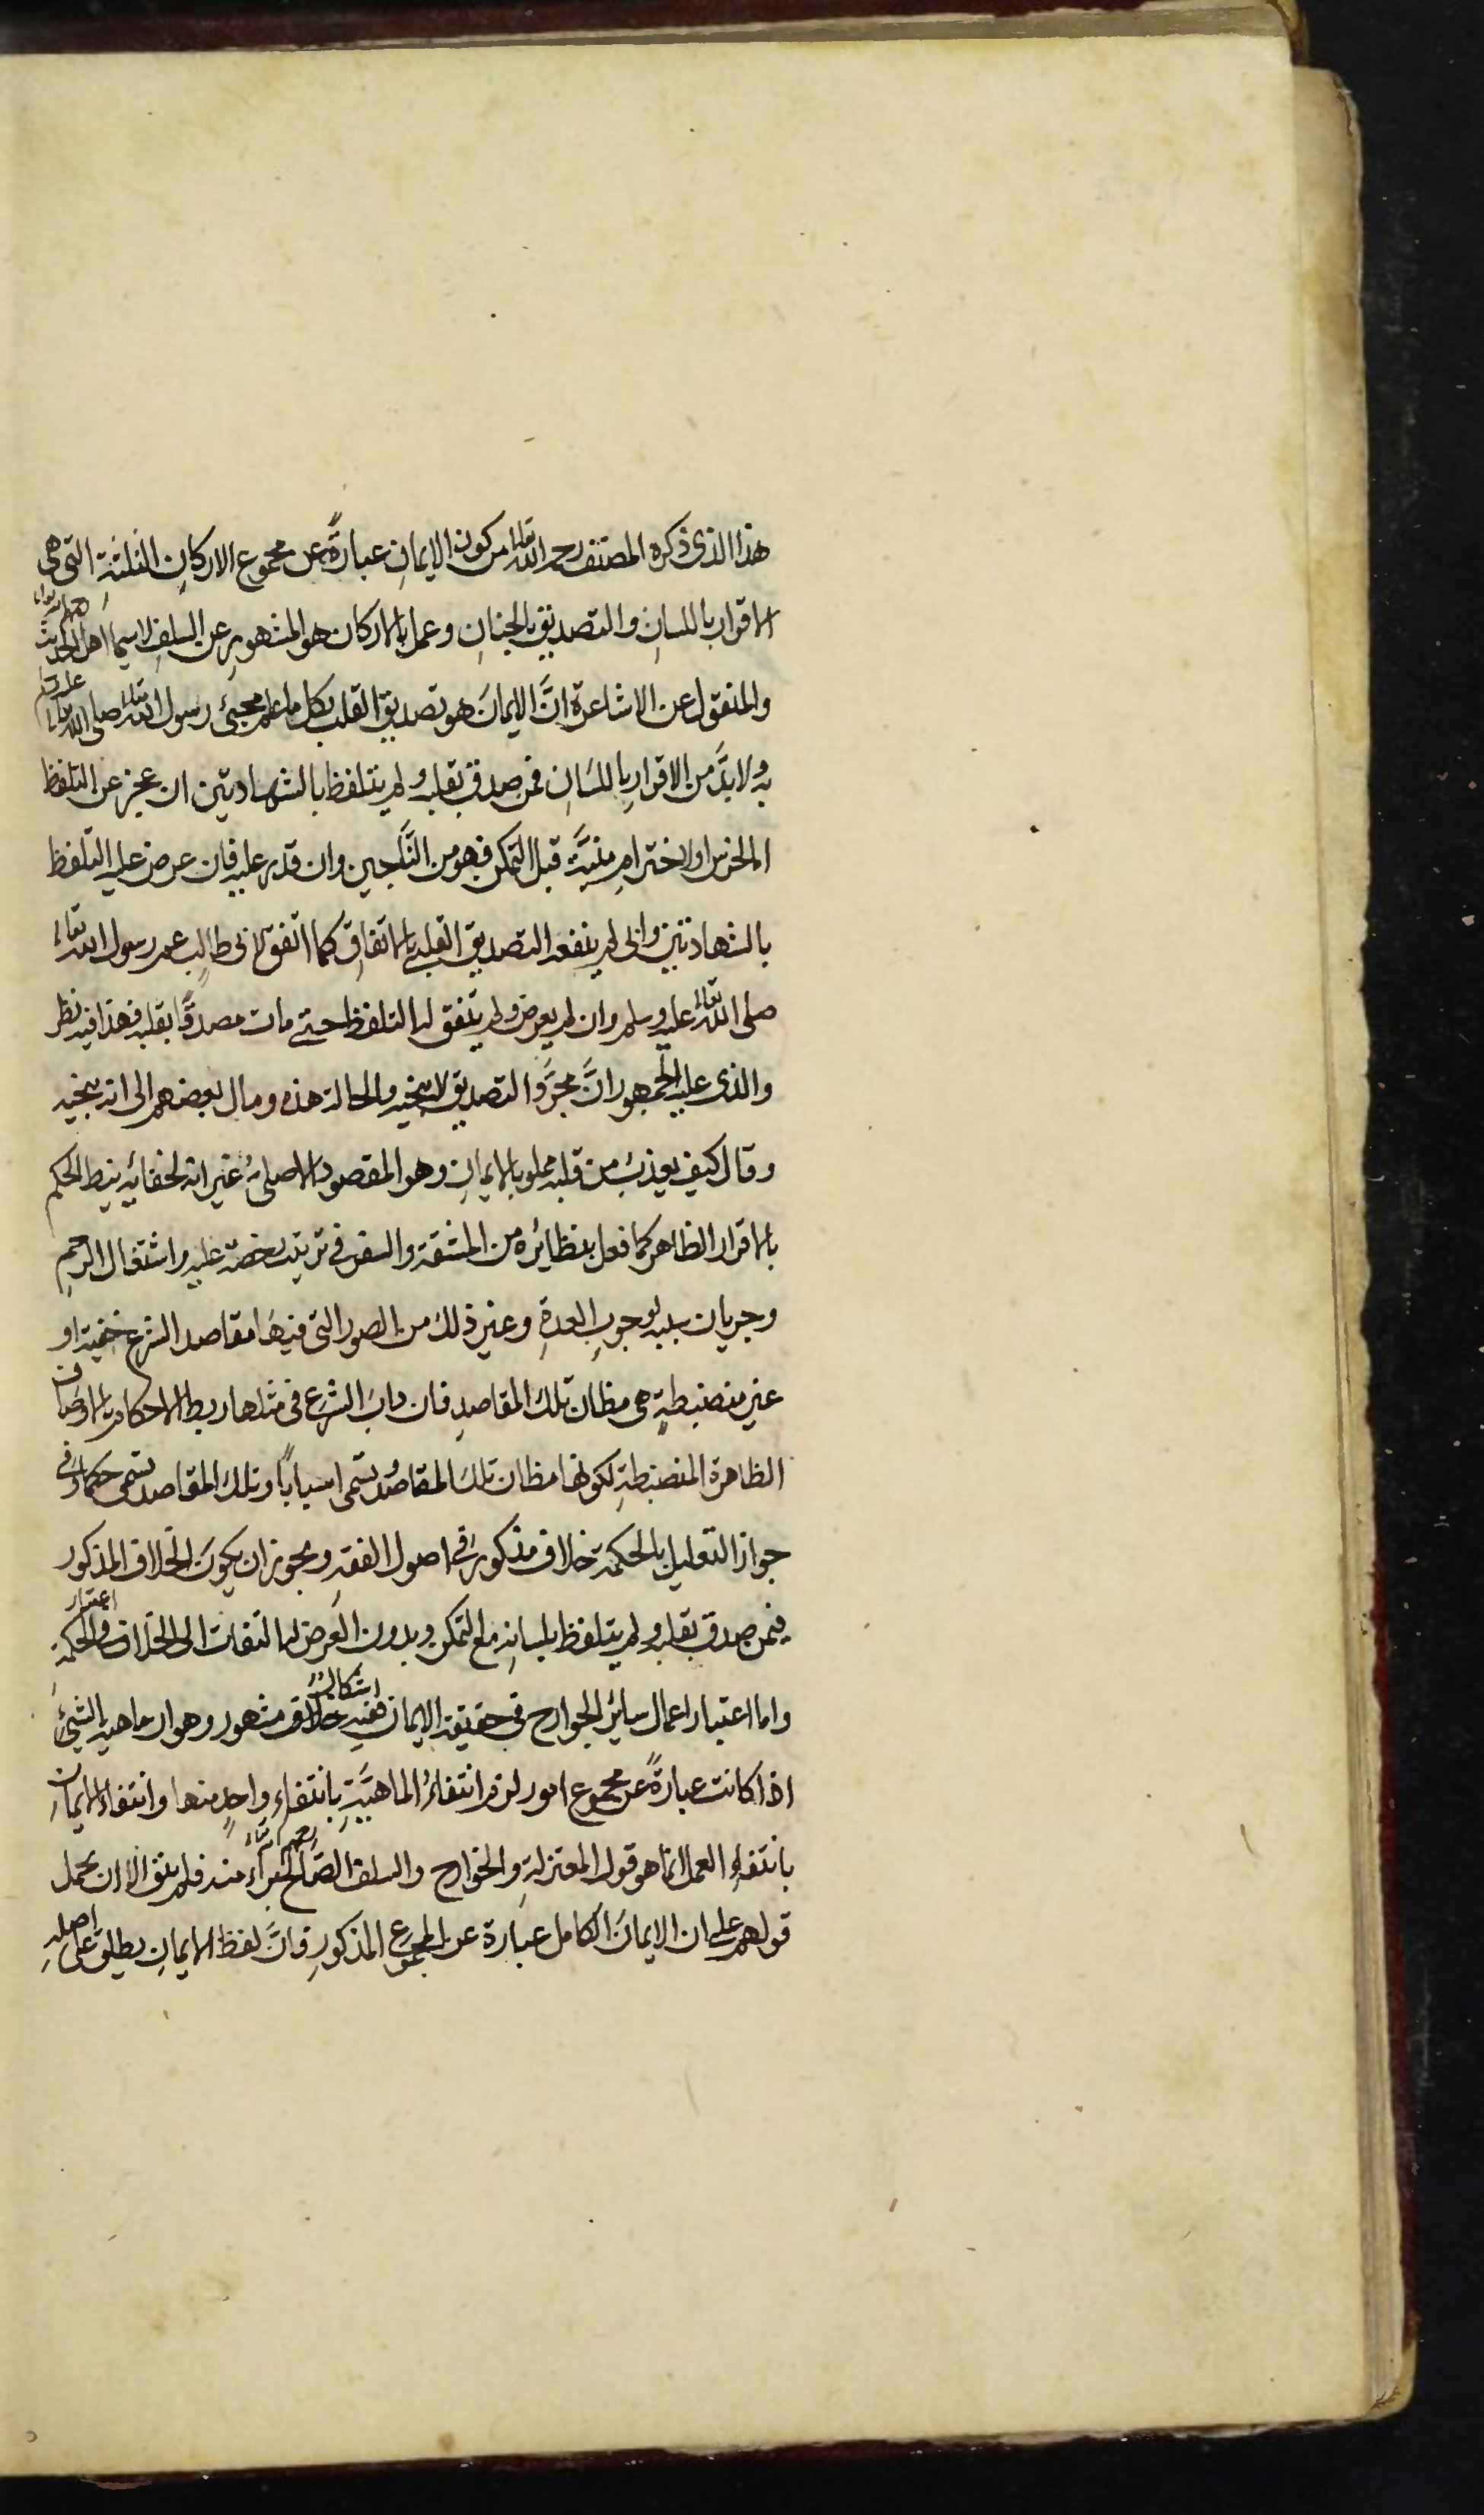 هذا الذى ذكره المصنف رحمه الله تعالى من كون الايمانِ عبارةً عن مجموع الاركانِ الثلثةِ التى هى
الاقرار باللسانِ والتصديق بالجنانِ وعمل بالاركان هو المشهور عن السلفِ لاسيما اهل الحديث رحمهم الله تعالى
والمنقول عن الاشاعرة انَّ الايمانَ هو تصديق القلب بكل ما علم مجيئ رسول الله تعالى صلى الله تعالى عليه وسلم
به ولا بدَّ من الاقرارِ باللسَانِ فمن صدق بقلبه ولم يتلفظ بالشهادتين ان عجز عن التلفظ
لخرس او لاخترامِ منيَّة قبل التمكن فهو من النَّاجين وان قدر عليه فان عرض عليه التلفظ
بالشهادتين وابى لم ينفعه التصديق القلبى بالاتفاقِ كما اتفق لابى طالب عم رسول الله تعالى
صلى الله تعالى عليه وسلم وان لم يعرض ولم يتفق له التلفظ حتى مات مصدقًا بقلبه فهذا فيه نظر
والذى عليه الجمهور انَّ مجرَّد التصديق لا ينجيه والحالة هذه ومال بعضهم الى انه ينجيه
وقال كيف يعذب من قلبه مملو بالايمانِ وهو المقصود الاصلى غير انه لخفائه ينيط الحكم
بالاقرار الظاهر كما فعل بنظائره من المشقة والسفر فى ترتيب رخصة عليه واشتغال الرحمِ
وجريان سببه لوجوبِ العدةِ وغير ذلك من الصور التى فيها مقاصد الشرع خفية او
غير منضبطةٍ هى مظان تلك المقاصدِ فان داب الشرع فى مثلها ربط الاحكام بالاوصاف
الظاهرة المنضبطةِ لكونها مظان تلك المقاصد تسمى اسباباً وتلك المقاصد تسمى حكما وفى
جواز التعليل بالحكمة خلاف مذكور فى اصول الفقهِ ويجوز ان يكونَ الخلاف المذكور
فيمن صدق بقلبه ولم يتلفظ بلسانهِ مع التمكن وبدون العَرض له التفات الى الخلاف فى اعتبار الحكمة
واما اعتبار اعمال سائر الجوارح فى حقيقة الايمان ففيه اشكال مشهور وهو ان ماهية الشيئ
اذا كانت عبارةً عن مجموع امور لزم انتفاءُ الماهيَّةِ بانتفاءِ واحدٍ منها وانتفاء الايمان
بانتفاءِ العمل انما هو قول المعتزلةِ والخوارج والسلف الصّالح رحمهم الله تعالى براء منه فلم يبق الا ان يحمل
قولهم على ان الايمانَ الكامل عبارة عن المجموع المذكورِ فانَّ لفظ الايمانِ يطلق على اصلهِ